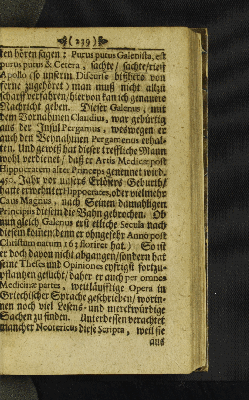 (239)
ten hören sagen: Purus putus Galenista, est
purus putus & Cetera, sachte/ sachte/ rieff
Apollo (so unserm Discurse bißhero von
ferne zugehöret) man muß nicht allzu
scharff verfahren/ hiervon kan ich genauere
Nachricht geben. Dieser Galenus, mit
dem Vornahmen Claudius, war gebürtig
aus der Insul Pergamus, weswegen er
auch den Beynahmen Pergamenus erhal-
ten. Und gewiß hat dieser treffliche Mann
wohl verdienet/ daß er Artis Medicæ post
Hippocratem alter Princeps genennet wird.
450. Jahr vor unsers Erlösers Geburth/
hatte erwehnter Hippocrates, oder vielmehr
Caus Magnus, nach Seinen damahligen
Principiis diesem die Bahn gebrochen. Ob
nun gleich Galenus erst etliche Secula nach
diesem komen/ denn er ohngefehr Anno post
Christum natum 163. floriret hat. So ist
er doch davon nicht abgangen/ sondern hat
seine Theses und Opiniones eyfrigst fortzu-
pflantzen gesucht/ daher er auch per omnes
Medicinæ partes, weitläufftige Opera in
Griechischer Sprache geschrieben/ worin-
nen noch viel Lesens- und merckwürdige
Sachen zu finden. Unterdessen verachtet
mancher Neotericus diese Scripta, weil sie
aus